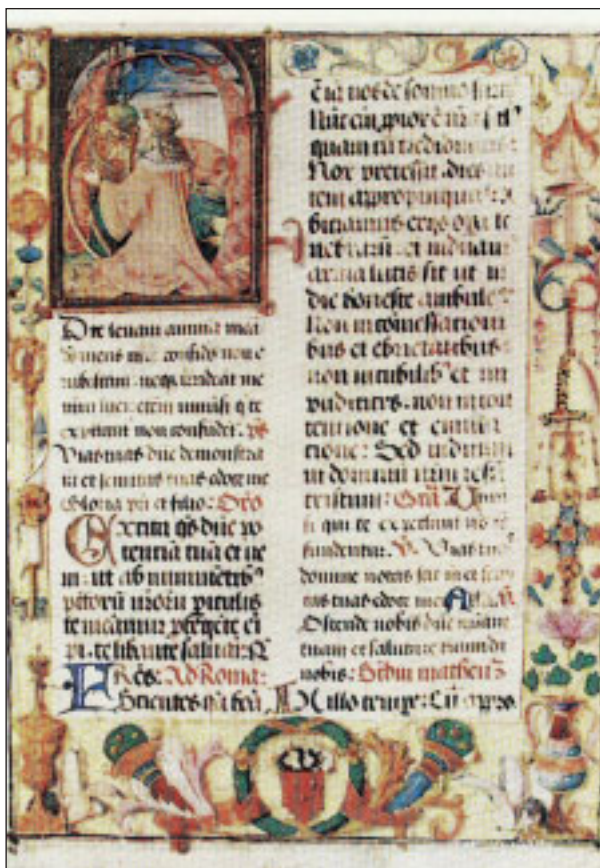 te levavi anima mea
deus meus confido non e
rubescam: neqz irrideat me
inimici mei: etem universi q te
expectant non confudet. ps
Vias tuas dne demonstra
m et semitas tuas edoce me
Gloria pri et filio: Oro
Excita qs dne po
tentia tua et ve
ni: ut ab
pctoru nroru piculis
te meamur
te liberate saluari:
Fres: Ad Roma:
Scientes
e ia nos de somno sur
Nuc em ppior e nra
quam cu credidimus
Nox precessit. dies au
tem appropinquat: A
biciamus ergo opa te
nebraru: et induam
arma lucis sit ut in
die honeste ambule
Non in comessationi
bus et ebrietatibus:
non in cubilib9 et im
pudiciciis. non in con
tentione et emula
tione: Sed indumi
ni dominu nrm iesu
cristum: Gra Univer
si qui te expectant no co
fundentur. V. Vias tuas
domine notas fac m et semi
tas tuas edoce me Alla. V.
Ostende nobis dne misam
tuam et salutare tuum da
nobis: Scdm matheu
In illo tempe: Cu appro.